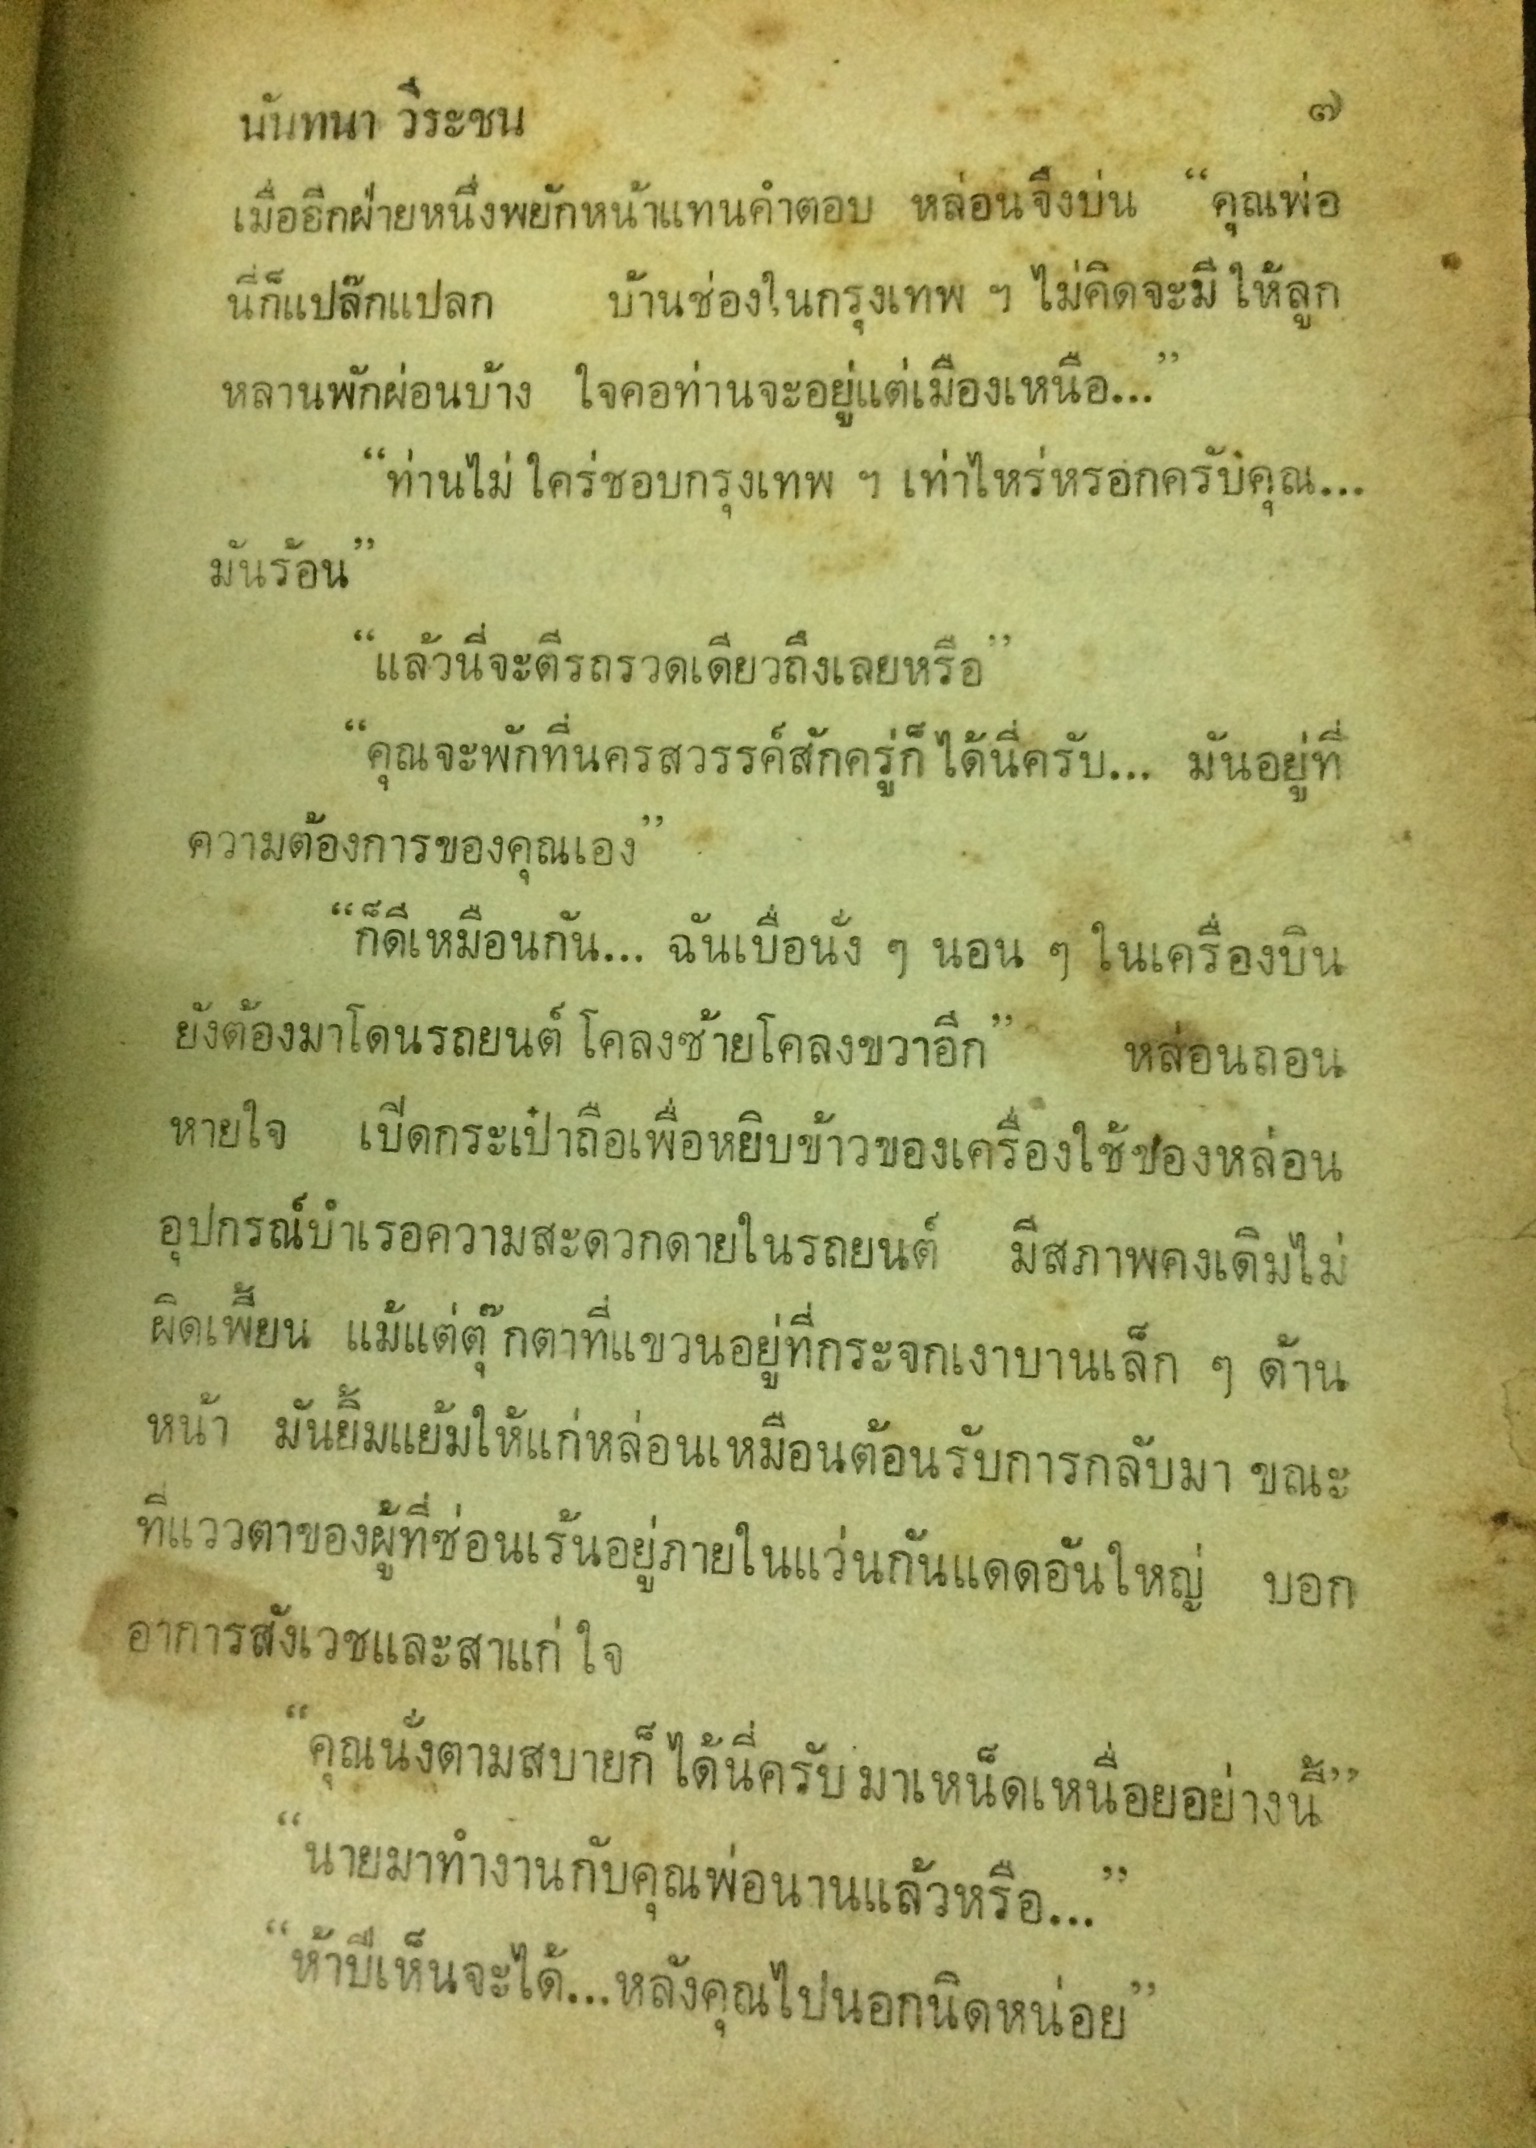 นันทนา วีระชน ๗
เมื่ออีกฝ่ายหนึ่งพยักหน้าแทนคำตอบ หล่อนจึงบ่น “คุณพ่อ
นี่ก็แปล๊กแปลก บ้านช่องในกรุงเทพ ฯ ไม่คิดจะมี ให้ลูก
หลานพักผ่อนบ้าง ใจคอท่านจะอยู่แต่เมืองเหนือ...”
“ท่านไม่ ใคร่ชอบกรุงเทพ ฯ เท่าไหร่หรอกครับคุณ...
มันร้อน”
“แล้วนี่จะตีรถรวดเดียวถึงเลยหรือ”
“คุณจะพักที่นครสวรรค์สักครู่ก็ ได้นี่ครับ... มันอยู่ที่
ความต้องการของคุณเอง”
“ก็ดีเหมือนกัน... ฉันเบื่อนั่ง ๆ นอน ๆ ในเครื่องบิน
ยังต้องมาโดนรถยนต์ โคลงซ้ายโคลงขวาอีก” หล่อนถอน
หายใจ เปิดกระเป๋าถือเพื่อหยิบข้าวของเครื่องใช้ของหล่อน
อุปกรณ์บำเรอความสะดวกดายในรถยนต์ มีสภาพคงเดิมไม่
ผิดเพี้ยน แม้แต่ตุ๊กตาที่แขวนอยู่ที่กระจกเงาบานเล็ก ๆ ด้าน
หน้า มันยิ้มแย้มให้แก่หล่อนเหมือนต้อนรับการกลับมา ขณะ
ที่แววตาของผู้ที่ซ่อนเร้นอยู่ภายในแว่นกันแดดอันใหญ่ บอก
อาการสังเวชและสาแก่ ใจ
“คุณนั่งตามสบายก็ ได้นี่ครับ มาเหน็ดเหนื่อยอย่างนี้”
“นายมาทำงานกับคุณพ่อนานแล้วหรือ...”
“ห้าปีเห็นจะได้...หลังคุณไปนอกนิดหน่อย”